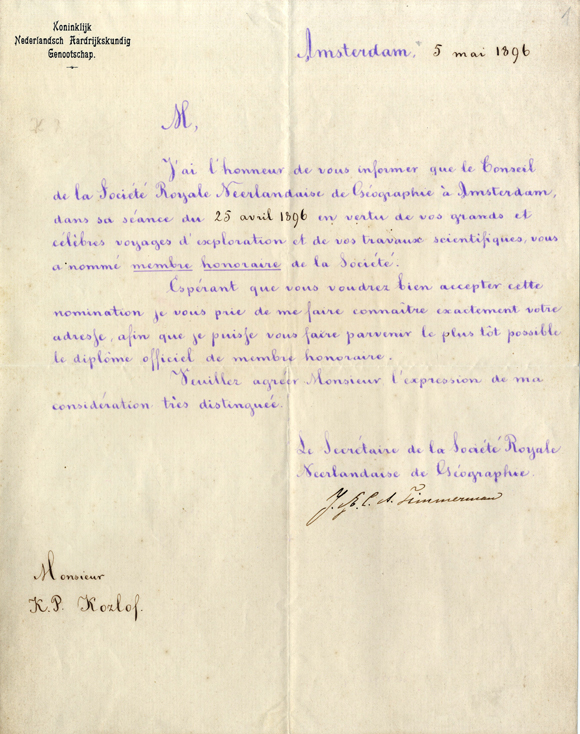 Koninklijk
Nederlandsch Aardrijkskundig
Genootschap.
Amsterdam, 5 mai 1896
1
M,
J'ai l'honneur de vous informer que le Conseil
de la Société Royale Neerlandaise de Géographie à Amsterdam,
dans sa séance du 25 avril 1896 en vertu de vos grands et
célèbres voyages d'exploration et de vos travaux scientifiques, vous
a nommé membre honoraire de la Société.
Espérant que vous voudrez bien accepter cette
nomination je vous prie de me faire connaître exactement votre
adresse, afin que je puisse vous faire parvenir le plus tôt possible
le diplôme officiel de membre honoraire.
Veuillez agréer Monsieur l'expression de ma
considération très distinguée.
Le Secrétaire de la Société Royale
Neerlandaise de Géographie.
Timmerman
Monsieur
K.P. Kozlof.